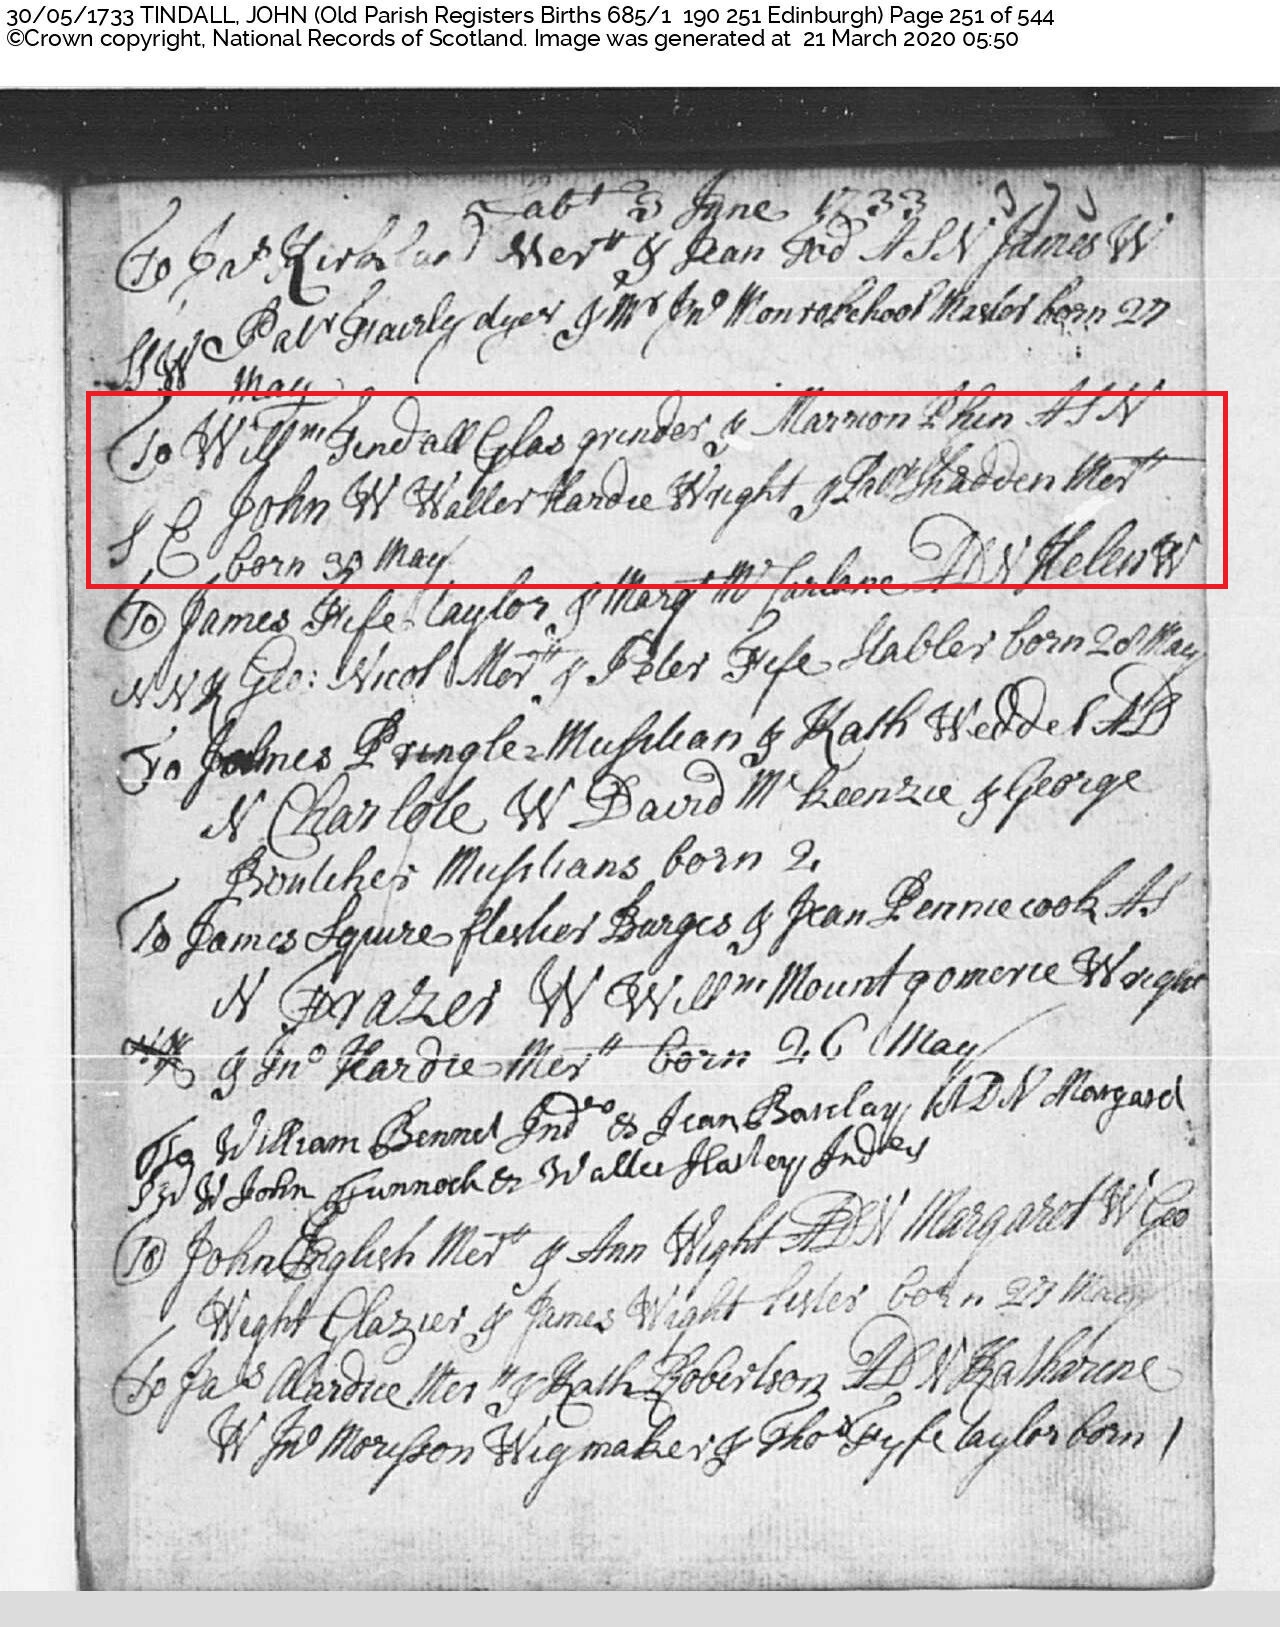 30/05/1733 TINDALL, JOHN (Old Parish Registers Births 685/1 190 251 Edinburgh) Page 251 of 544
©Crown copyright, National Records of Scotland. Image was generated at 21 March 2020 05:50
Sabt 3 June 1733
To Jas Kirkland Mert & Jean Tod A S N James W
Patr Fairly dyer & Mr Jno Monro School Master born 27
May
To Willm Tindall Glas grinder & Marrion Phin A S N
John W Walter Hardie Wright & Patr Shadden Mert
S E born 30 May
To James Fife taylor & Margt Mc Carlane A D N Helen W
N N K Geo: Nicol Mert & Peter Fife Stabler born 28 May
To James Pringle Musitian & Kath Weddel A D
N Charlote W David Mc Keenzie & George
Musitians born 2
To James Squire flesher Burges & Jean Penniecook A S
N Frazer W Willm Mountgomerie Wright
& Jno Hardie Mert born 26 May
To William Bennet Indro & Jean Barclay A D N Margaret
W John Gunnock & Walter Indrers
To John English Mert & Ann Wight A D N Margaret W Geo
Wight Glazier & James Wight born 27 May
To Jas Alardice Mert & Kath Robertson A D N Katharine
W Jno Morisson Wigmaker & Thos Fyfe taylor born 1